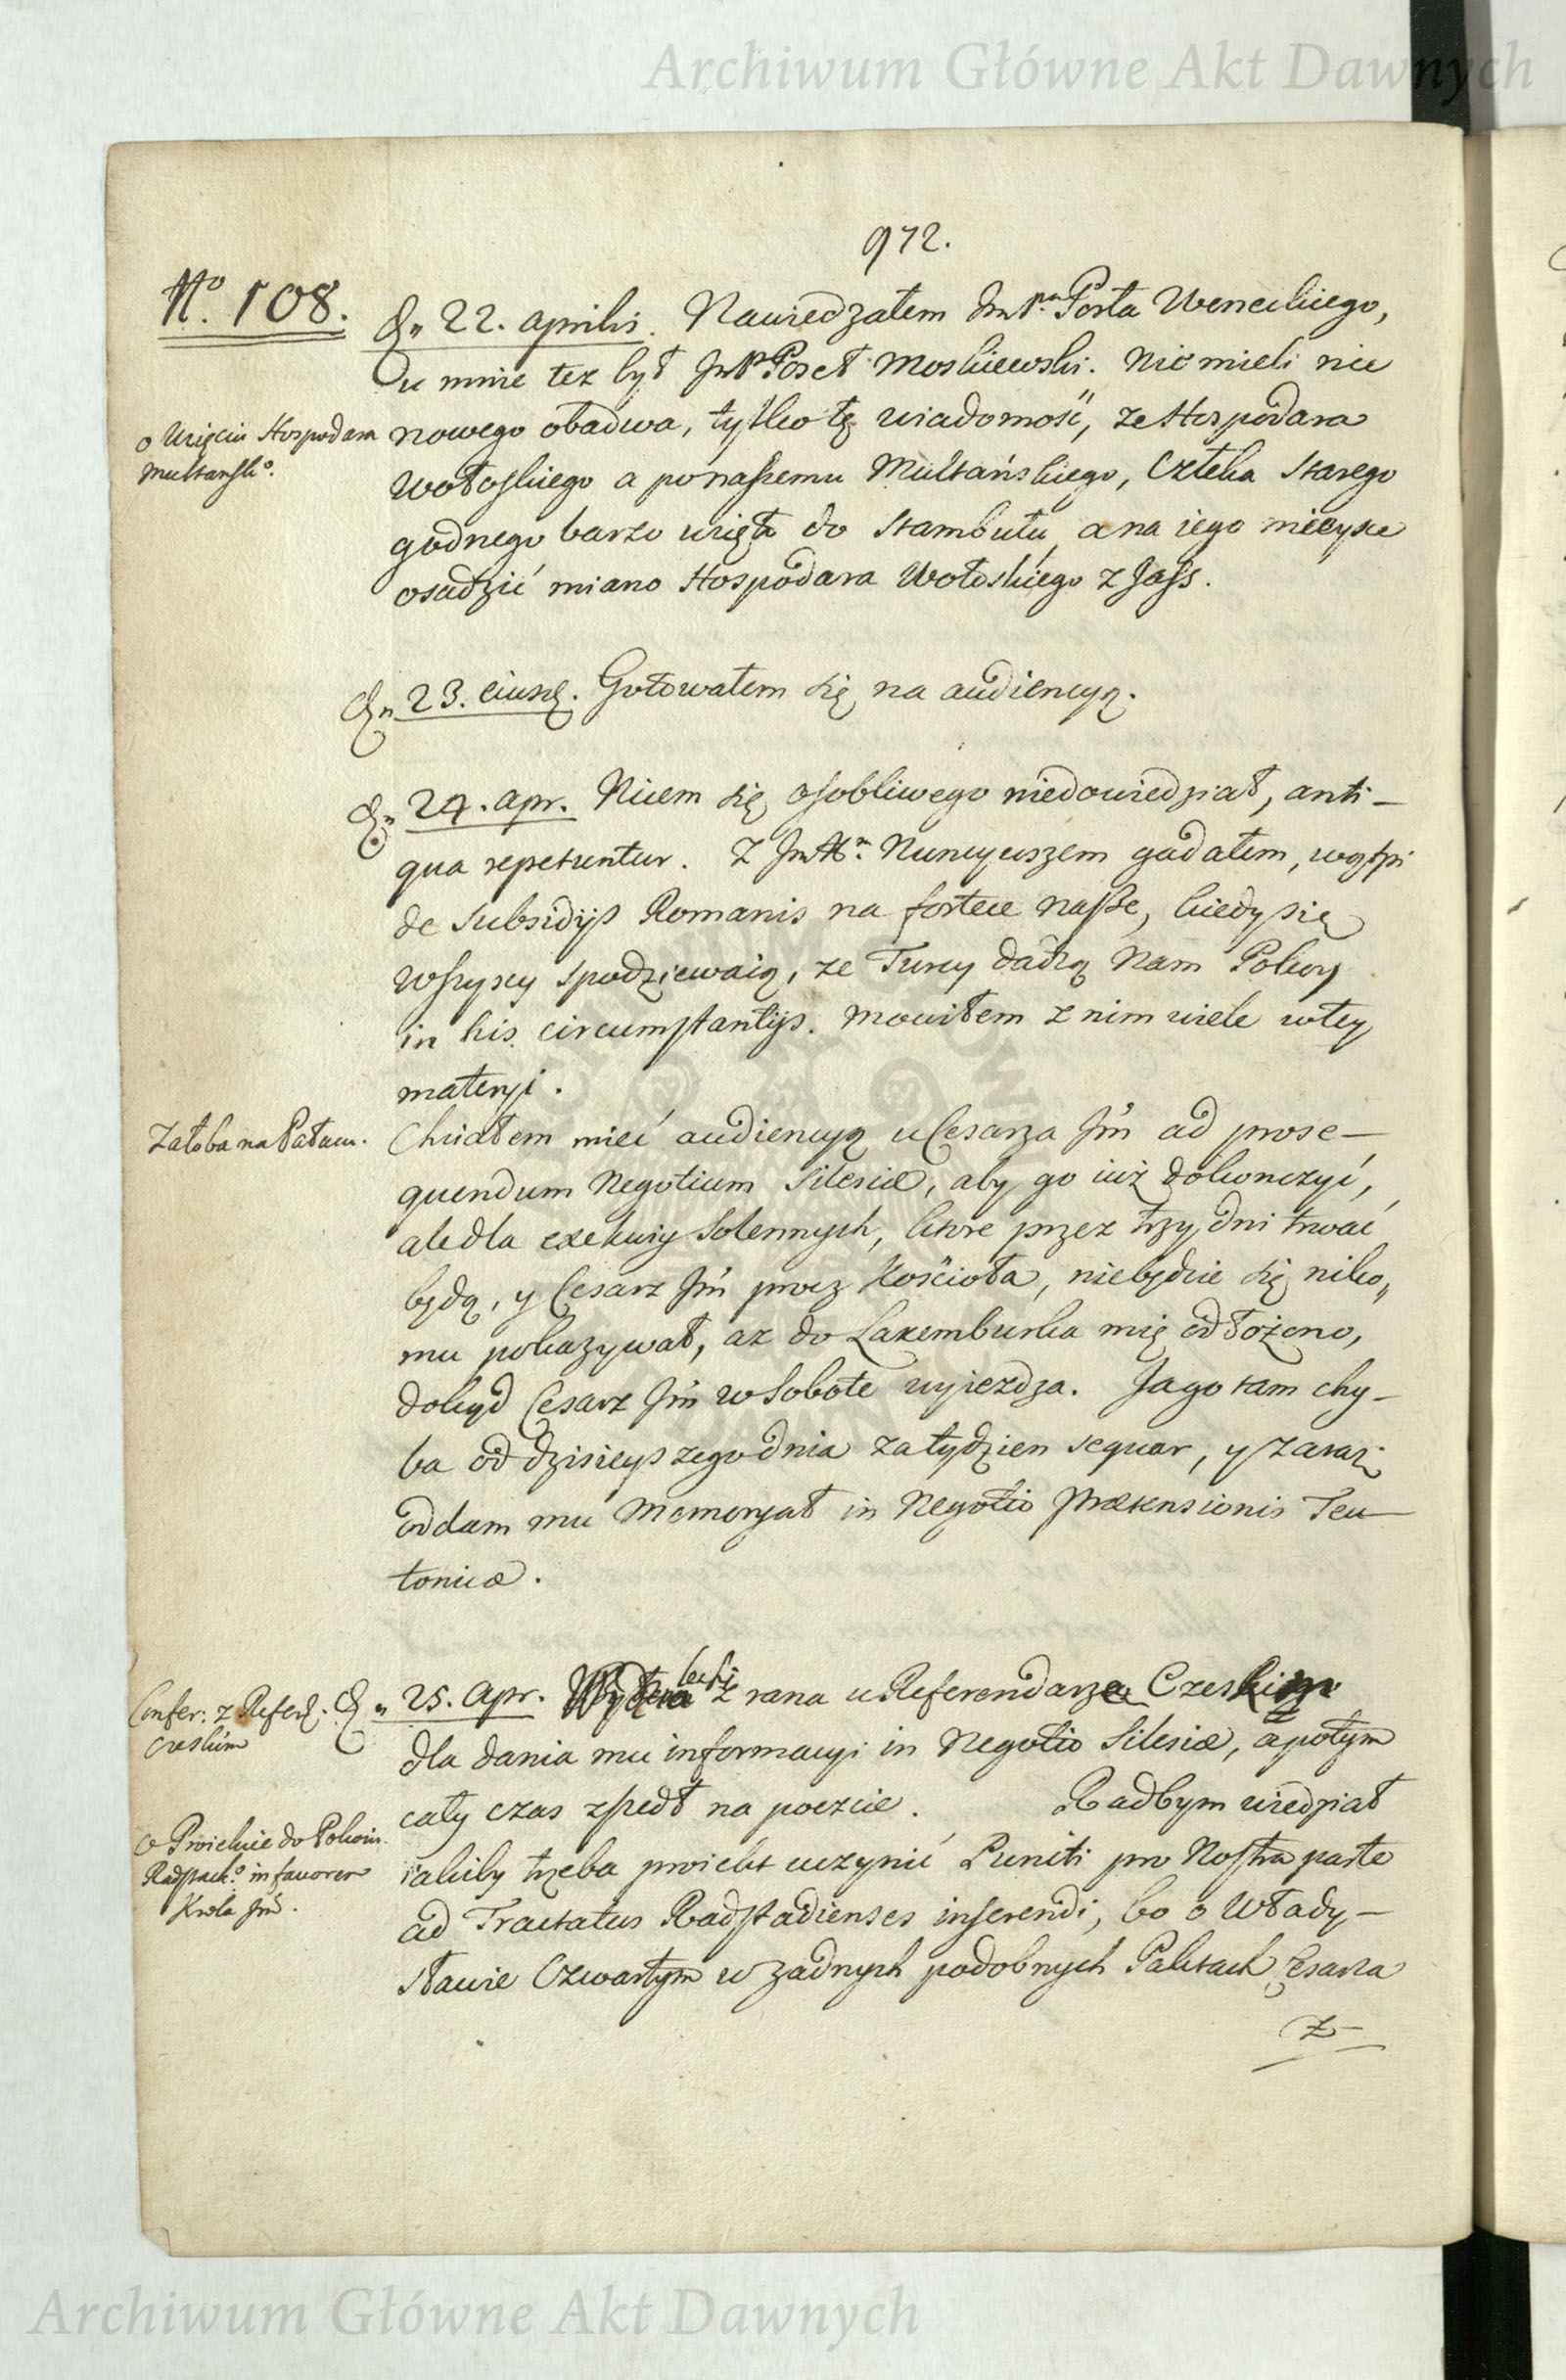 Archiwum Główne Akt Dawnych
972.
No. 108.
Dn 22. aprilis. Nawiedzałem Jmp. Posła Weneckiego,
u mnie tez był Jmp Poseł Moskiewski. Nic mieli nic
o Wzięciu Hospodara
Multanskº.
nowego obadwa, tylko tę wiadomość, ze Hospodara
Wołoskiego a ponaszemu Multańskiego, Człeka Starego
godnego barzo wzięto do Stambułu, a na iego mieysce
osadzić miano Hospodara Wołoskiego z Jass.
Dn 23. eiusd. Gotowałem się na audiencyą.
Dn 24. apr. Nicem się osobliwego niedowiedział, anti-
qua repetuntur. Z Jm Xn. Nuncyuszem gadałem, wątpi
de Subsidijs Romanis na fortece nasze, kiedy się
wszyscy spodziewaią, ze Turcy dadzą Nam Pokoy
in his circumstantijs. Mowiłem z nim wiele wtey
materyi.
Załoba na Pałacu.
Chciałem mieć audiencyą u Cesarza Jm ad prose-
quendum Negotium Silesiæ, aby go iuż dokonczyć,
ale dla exekwiy Solennych, ktore przez trzy dni trwać
będą, y Cesarz Jm procz Kościoła, niebędzie się niko„
mu pokazywał, az do Laxemburka mię odłożono,
dokąd Cesarz Jm w Sobote wyiezdza. Ja go tam chy-
ba od dzisieyszego dnia za tydzien sequar, y zaraz
oddam mu Memoryał in Negotio Prætensionis Teu-
tonicæ.
Confer: z Referd.
czeskim
Dn 25. Apr. z rana u Referendarza Czeskiego
dla dania mu informacyi in Negotio Silesiæ, a potym
cały czas zszedł na poczcie. Radbym wiedział
o Proiekcie do Pokoiu
Radstackº. in favorem
Krola Jm.
iakiby trzeba proiekt uczynić Puncti pro Nostra parte
ad Tractatus Radstadienses inserendi, bo o Włady-
sławie Czwartym w zadnych podobnych Paktach Cesarza
z-
Archiwum Główne Akt Dawnych